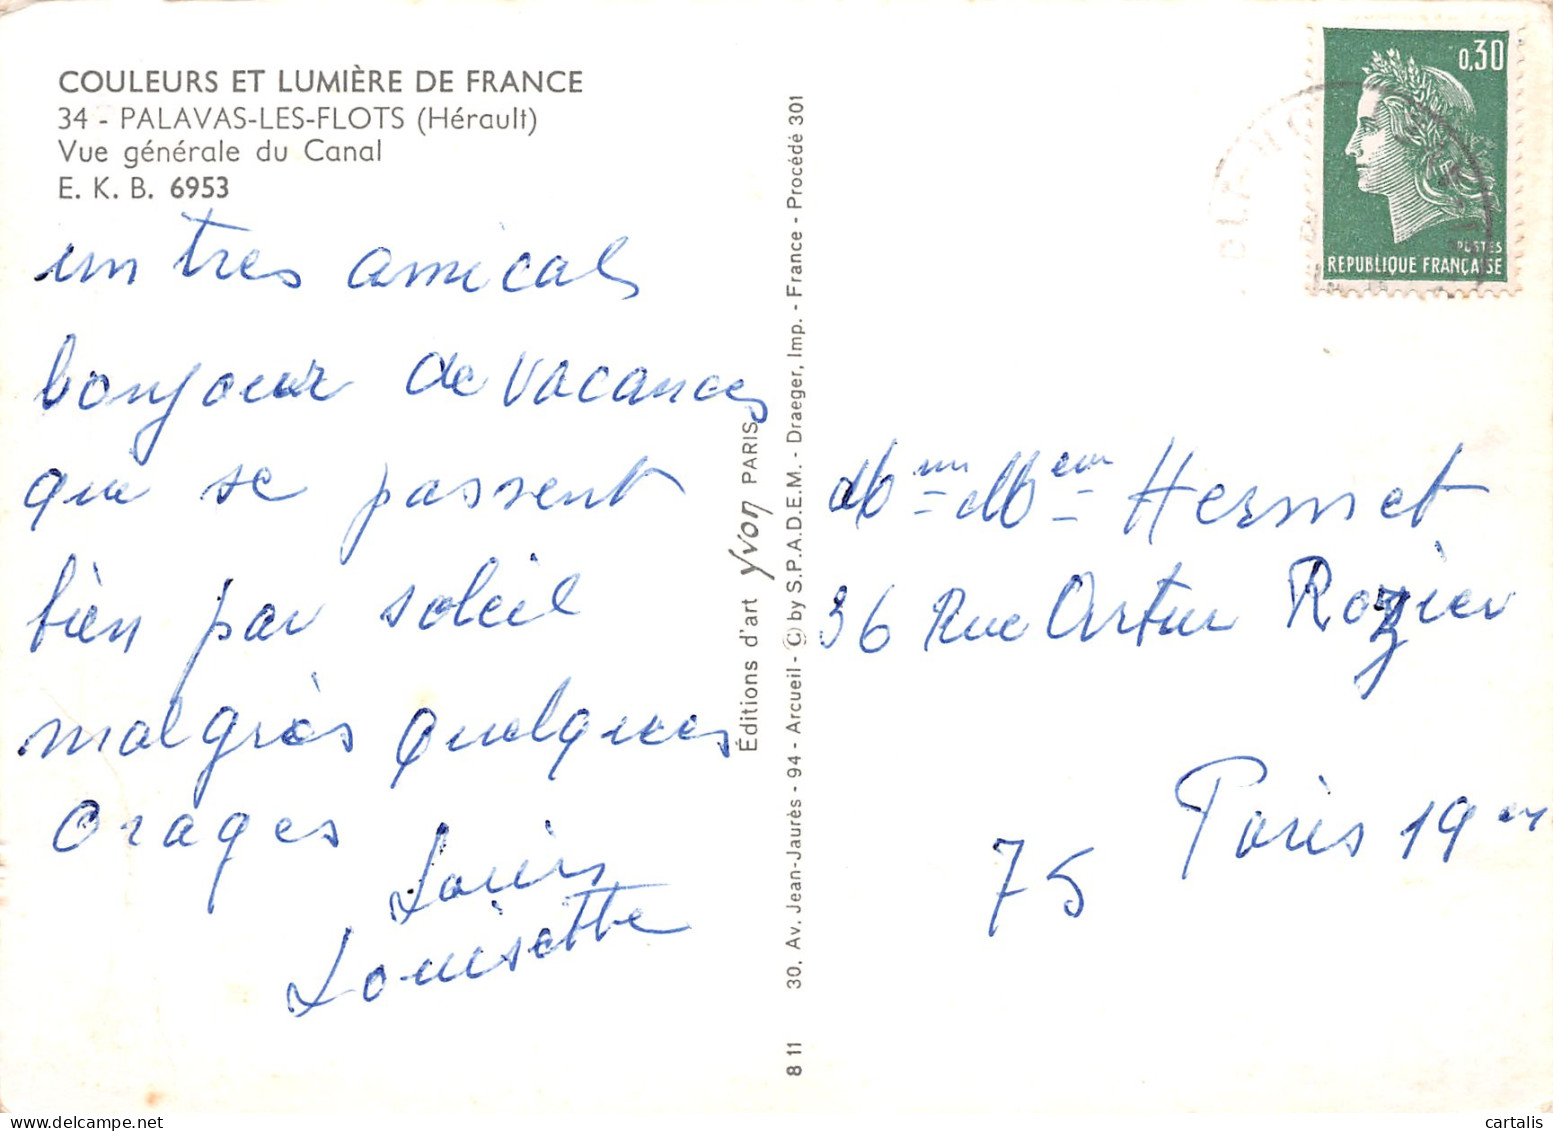 COULEURS ET LUMIÈRE DE FRANCE
34 - PALAVAS-LES-FLOTS (Hérault)
Vue générale du Canal
E. K. B. 6953
un tres amical
bonjour de vacances
qui se passent
bien par soleil
malgrès quelques
orages
Louis
Louisette
Éditions d'art Yvon PARIS
30, Av. Jean-Jaurès - 94 - Arcueil - © by S.P.A.D.E.M. - Draeger, Imp. - France - Procédé 301
8 11
0,30
POSTES
RÉPUBLIQUE FRANÇAISE
Hermet
36 Rue Artur Rozier
Paris 19
75
cartalis